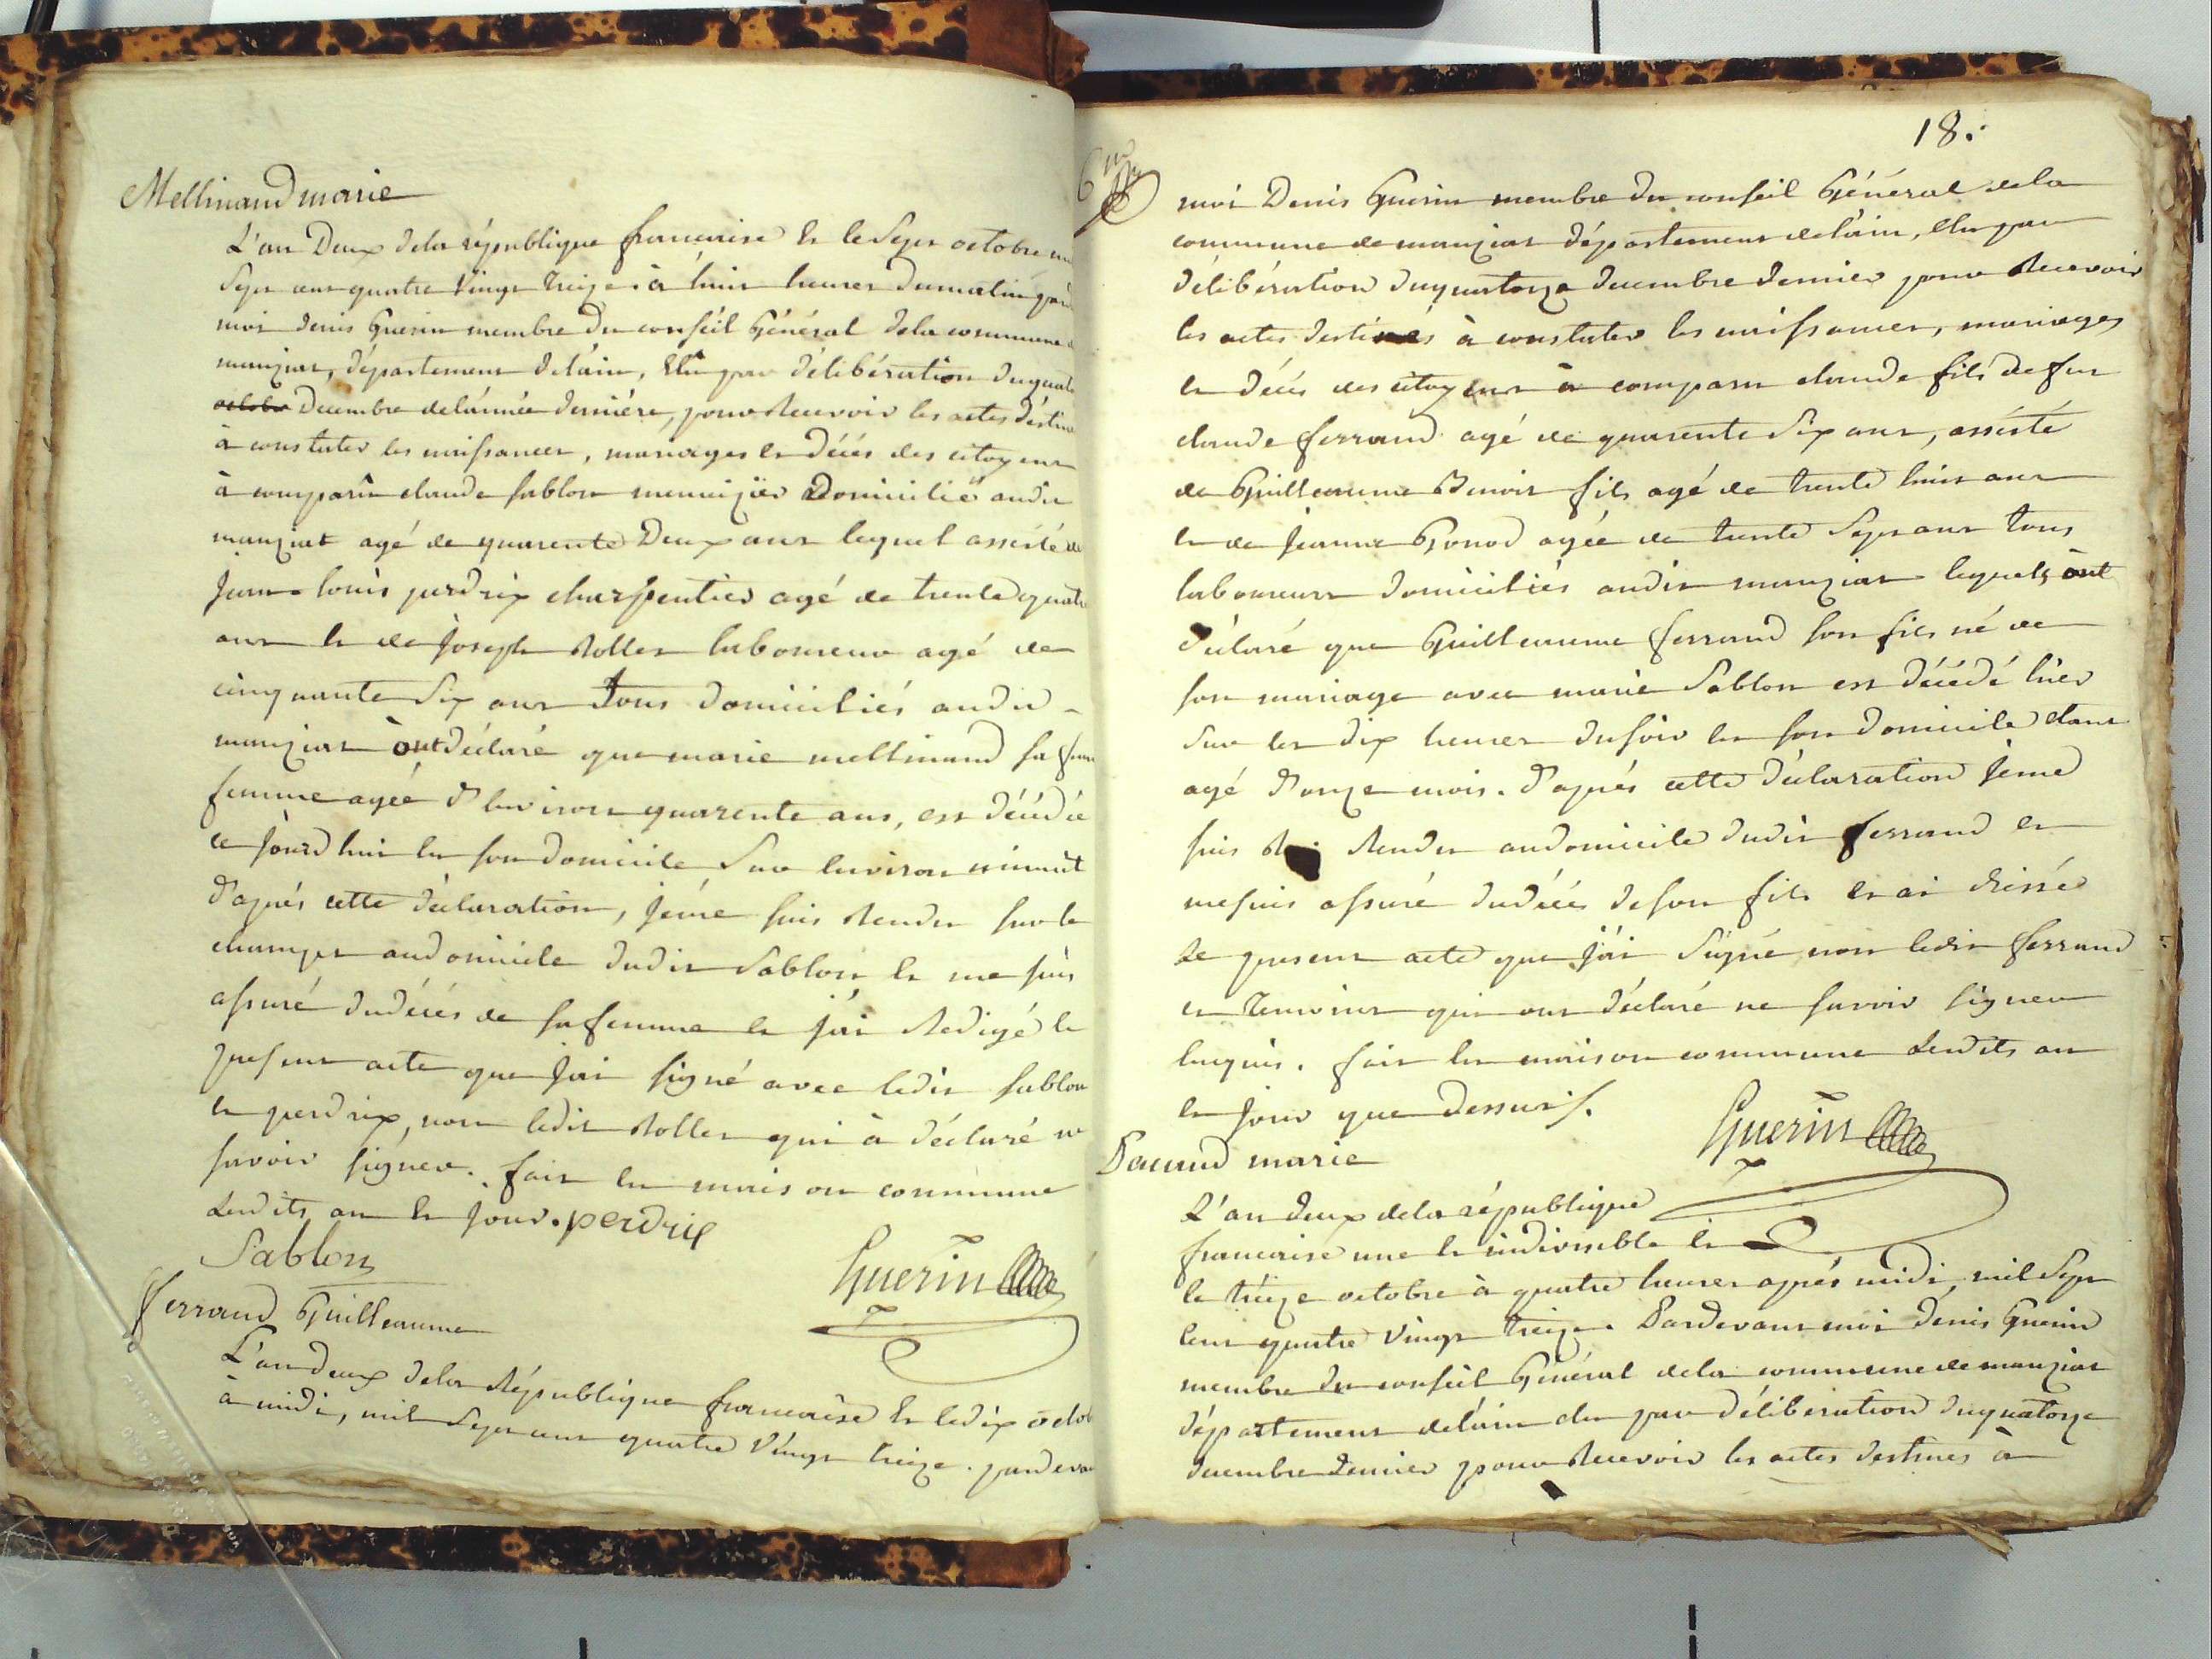 Mellinand marie
L'an Deux dela république francaise et le Sept octobre mil
Sept cent quatre Vingt treize à huit heures du matin pard
moi denis Guerin membre du conseil Général dela commune d
manziat, département delain, Elû par délibération duquato
octobr decembre delánnée derniére, pour Recevoir les actes déstiné
à constater les naissances, mariages et décés des citoyens
à comparû claude sablon menuizier Domicilié audit
manziat agé de quarente Deux ans lequel assisté de
jean-louis perdrix charpentier agé de trente quatre
ans et de joseph Rollet laboureur agé de
cinquante Six ans Tous domiciliés audit
manziat ònt déclaré que marie mellinand sa fem
femme agée d'Environ quarente ans, est décédée
ce jourdhui en son domicile Sur Environ minuit
d'aprés cette déclaration, je me suis Rendu sur le
champt audomicile dudit Sablon et me suis
assuré dudécés de sa femme et j'ai Redigé le
present acte que jai signé avec ledit sablon
et perdrix, non ledit Rollet qui à déclaré ne
savoir signer. fait en maison commune
Lesdits an et jour. perdrix
Sablon
Guerin
ferrand Guilleaume
L'an deux dela République francaise et ledix octob
à midi, mil Sept cent quatre Vingt treize. pardevan
18.
moi Denis Guerin membre du conseil Général dela
commune de manziat département delain, elu par
délibération duquatorze decembre dernier pour Recevoir
les actes destinés à constater les naissances, mariages
et décés des citoyens à comparu claude fils de feu
claude ferrand agé de quarente Six ans, assisté
de Guilleaume Benoit fils agé de trente huit ans
et de jeanne Gonod agée de trente Sept ans tous
laboureurs domiciliés audit manziat lequels ònt
déclaré que Guilleaume ferrand son fils né de
son mariage avec marie Sablon est décédé hier
Sur les dix heures dusoir en son domicile etant
agé d'onze mois. d'aprés cette déclaration jeme
suis Rendu audomicile dudit ferrand et
mesuis assuré dudécés deson fils et ai dréssé
Le present acte que j'ai Signé non ledit ferrand
et Temoins qui ont déclaré ne savoir signer
Enquis. fait en maison commune Lesdits an
et jour que dessus /.
Guerin
Pacaud marie
L'an deux dela république
francaise une et indivisible et
le tréize octobre à quatre heures aprés midi, mil Sept
Cent quatre Vingt treize. Pardevant moi dénis Guerin
membre du conseil Général dela commune de manziat
département delain elu par délibération duquatorze
decembre dernier pour Recevoir les actes destinés à